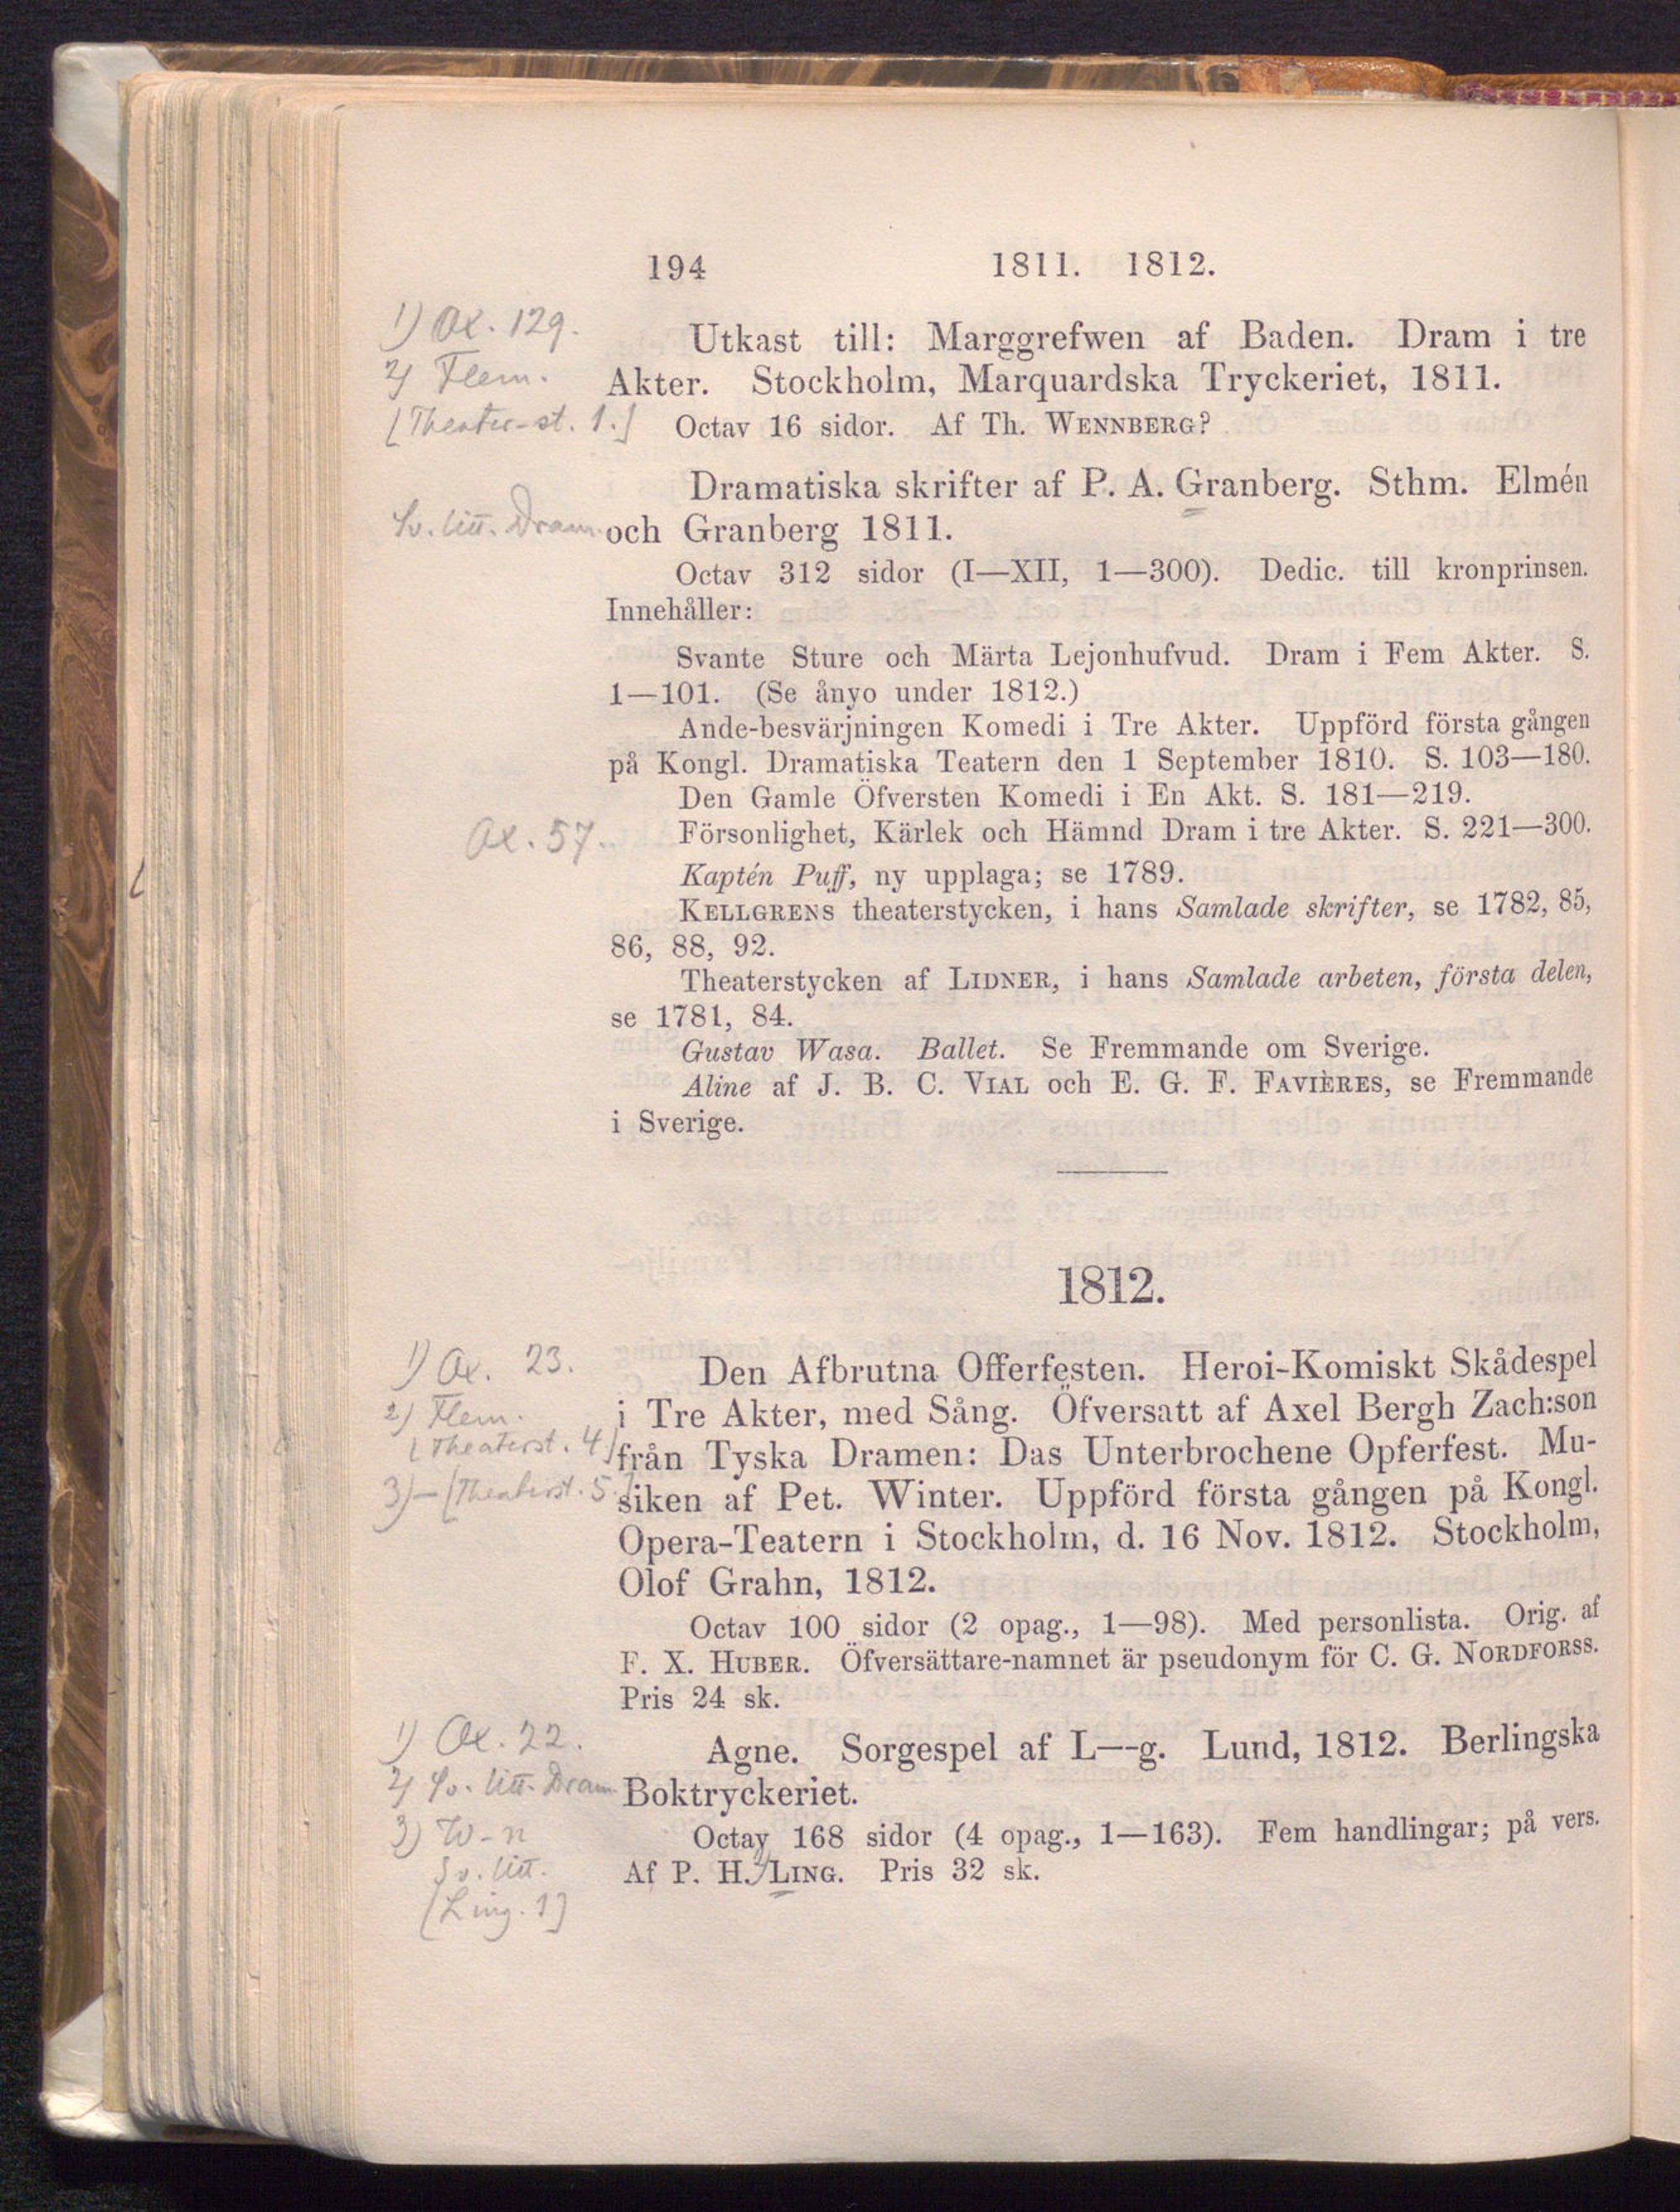 194 1811. 1812.
1) Ax. 129.
2) Flem.
[Theater-st. 1.]
Utkast till: Marggrefwen af Baden. Dram i tre
Akter. Stockholm, Marquardska Tryckeriet, 1811.
Octav 16 sidor. Af Th. WENNBERG?
Sv. litt. Dram.
Dramatiska skrifter af P. A. Granberg. Sthm. Elmén
och Granberg 1811.
Octav 312 sidor (I—XII, 1—300). Dedic. till kronprinsen.
Innehåller:
Svante Sture och Märta Lejonhufvud. Dram i Fem Akter. S.
1—101. (Se ånyo under 1812.)
Ande-besvärjningen Komedi i Tre Akter. Uppförd första gången
på Kongl. Dramatiska Teatern den 1 September 1810. S. 103—180.
Den Gamle Öfversten Komedi i En Akt. S. 181—219.
Ax. 57.
Försonlighet, Kärlek och Hämnd Dram i tre Akter. S. 221—300.
Kaptén Puff, ny upplaga; se 1789.
KELLGRENS theaterstycken, i hans Samlade skrifter, se 1782, 85,
86, 88, 92.
Theaterstycken af LIDNER, i hans Samlade arbeten, första delen,
se 1781, 84.
Gustav Wasa. Ballet. Se Fremmande om Sverige.
Aline af J. B. C. VIAL och E. G. F. FAVIÈRES, se Fremmande
i Sverige.
1812.
1) Ax. 23.
2) Flem.
[Theaterst. 4.]
3) — [Theaterst. 5.]
Den Afbrutna Offerfesten. Heroi-Komiskt Skådespel
i Tre Akter, med Sång. Öfversatt af Axel Bergh Zach:son
från Tyska Dramen: Das Unterbrochene Opferfest. Mu-
siken af Pet. Winter. Uppförd första gången på Kongl.
Opera-Teatern i Stockholm, d. 16 Nov. 1812. Stockholm,
Olof Grahn, 1812.
Octav 100 sidor (2 opag., 1—98). Med personlista. Orig. af
F. X. HUBER. Öfversättare-namnet är pseudonym för C. G. NORDFORSS.
Pris 24 sk.
1) Ax. 22.
2) Sv. litt. Dram.
3) W-n
Sv. litt.
[Ling. 1]
Agne. Sorgespel af L--g. Lund, 1812. Berlingska
Boktryckeriet.
Octav 168 sidor (4 opag., 1—163). Fem handlingar; på vers.
Af P. H. LING. Pris 32 sk.